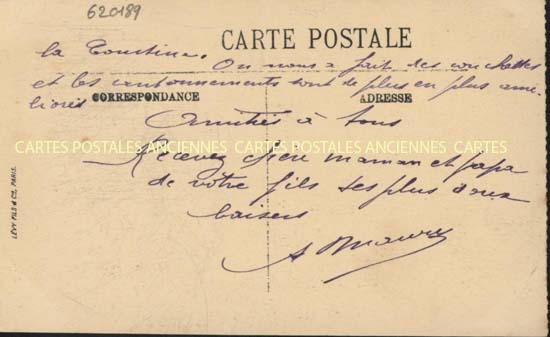 620189
CARTE POSTALE
la
On nous a fait des couchettes
et les cantonnements sont de plus en plus amé-
liorés
CORRESPONDANCE
ADRESSE
Amitiés à tous
CARTES POSTALES ANCIENNES CARTES POSTALES ANCIENNES CARTES
Recevez chère maman et papa
de votre fils ses plus doux
baisers
A Maury
LÉVY FILS & Co, PARIS.